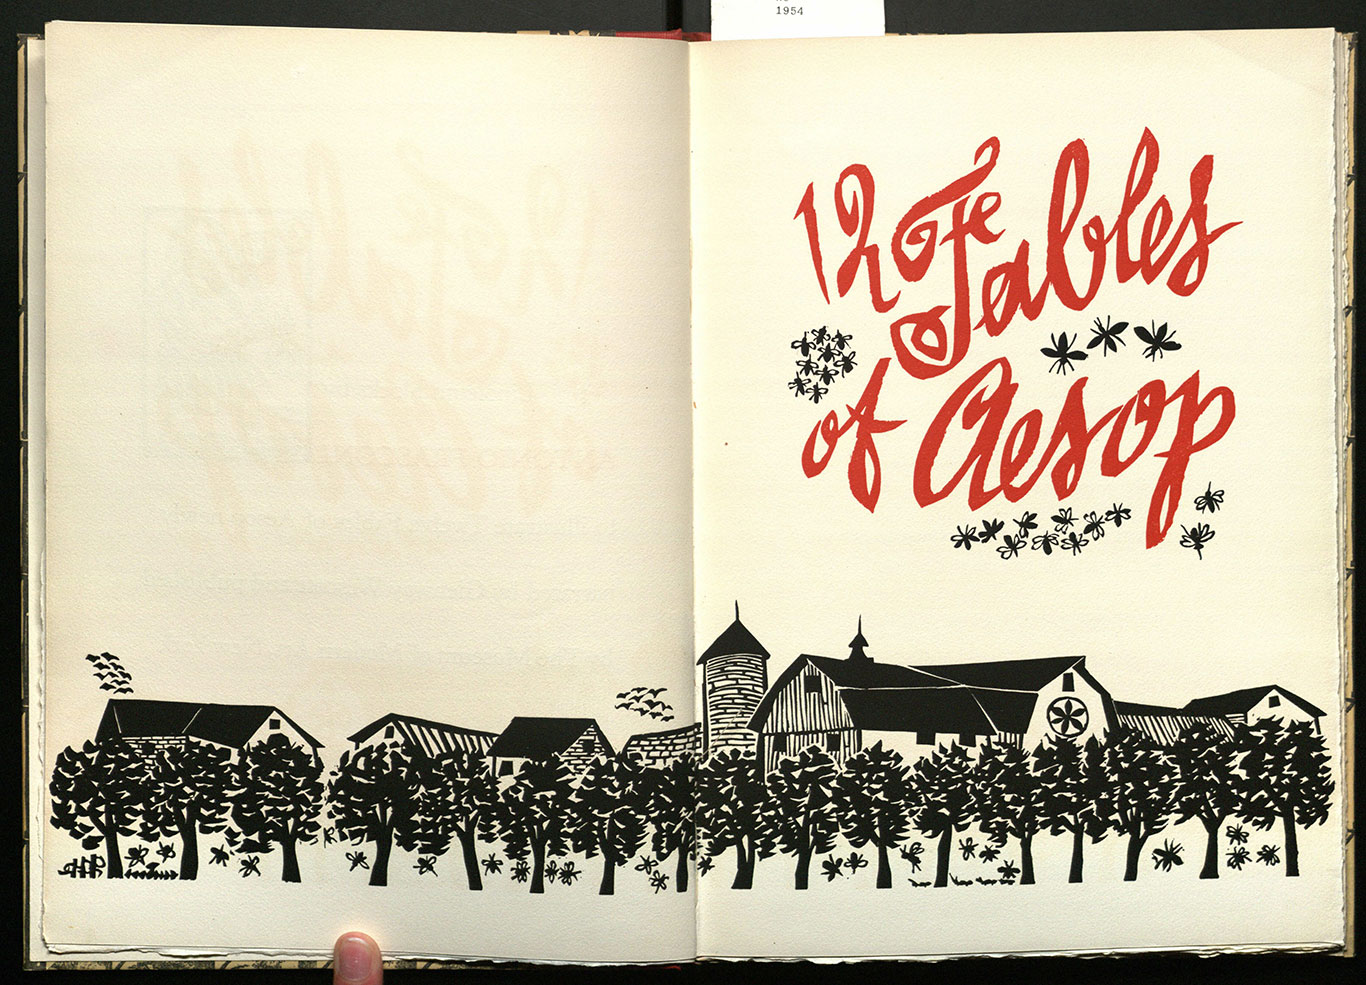 1954
12
Fables
of Aesop